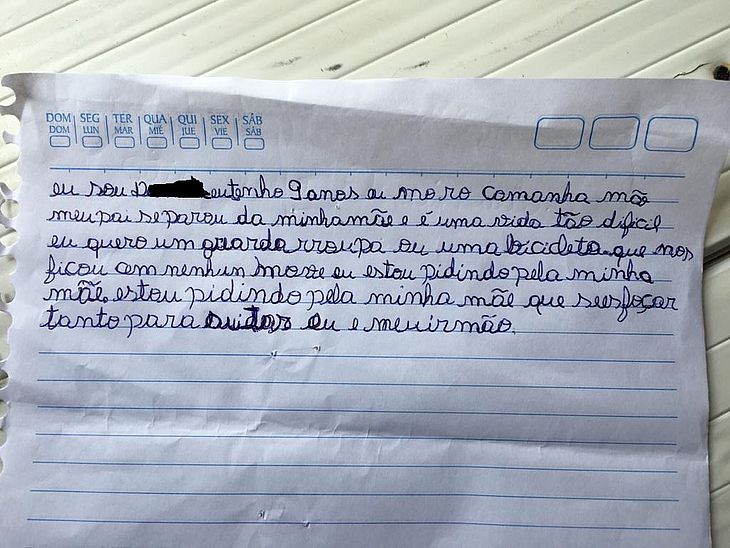 DOM SEG TER QUA QUI SEX SÁB
DOM LUN MAR MIÉ JUE VIE SÁB
eu sou D eutenho 9 anos eu moro comanha mãe
meu pai separou da minha mãe e é uma vida tão dificil
eu quero um guarda rroupa ou uma bicicleta que nos
ficou cem nenhun move eu estou pidindo pela minha
mãe. estou pidindo pela minha mãe que seesfoçar
tanto para cuidar eu e meu irmão.